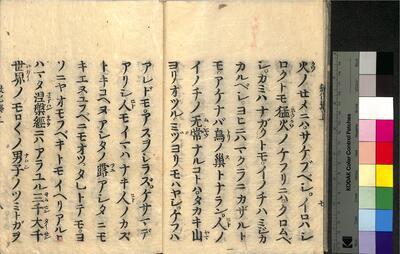 火ノセメニハサケブベシ。イロハシ
ロクトモ猛火ノケフリニハクロムベ
シ。カミハナガクトモイノチハミジカ
カルベシヨヒニハマクラニカザルト
モアケナバ鳥ノ巣トナラン。人ノ
イノチノ无常ナルコトハタカキ山
ヨリオツルミヅヨリモハヤシ。ケフハ
アレドモアスヲシラズ。ケサマデ
アリシ人モイマハナキ人ノカズ
トキコヘヌアシタノ露アシタニモ
キエユフベニモオツタレトテモヨ
ソニヤオモフベキトモイヘリアル
ハマタ涅槃經ニハアラユル三千大千
世界ノモロくノ男子ノツミトガヲ
七
KODAK Color Control Patches